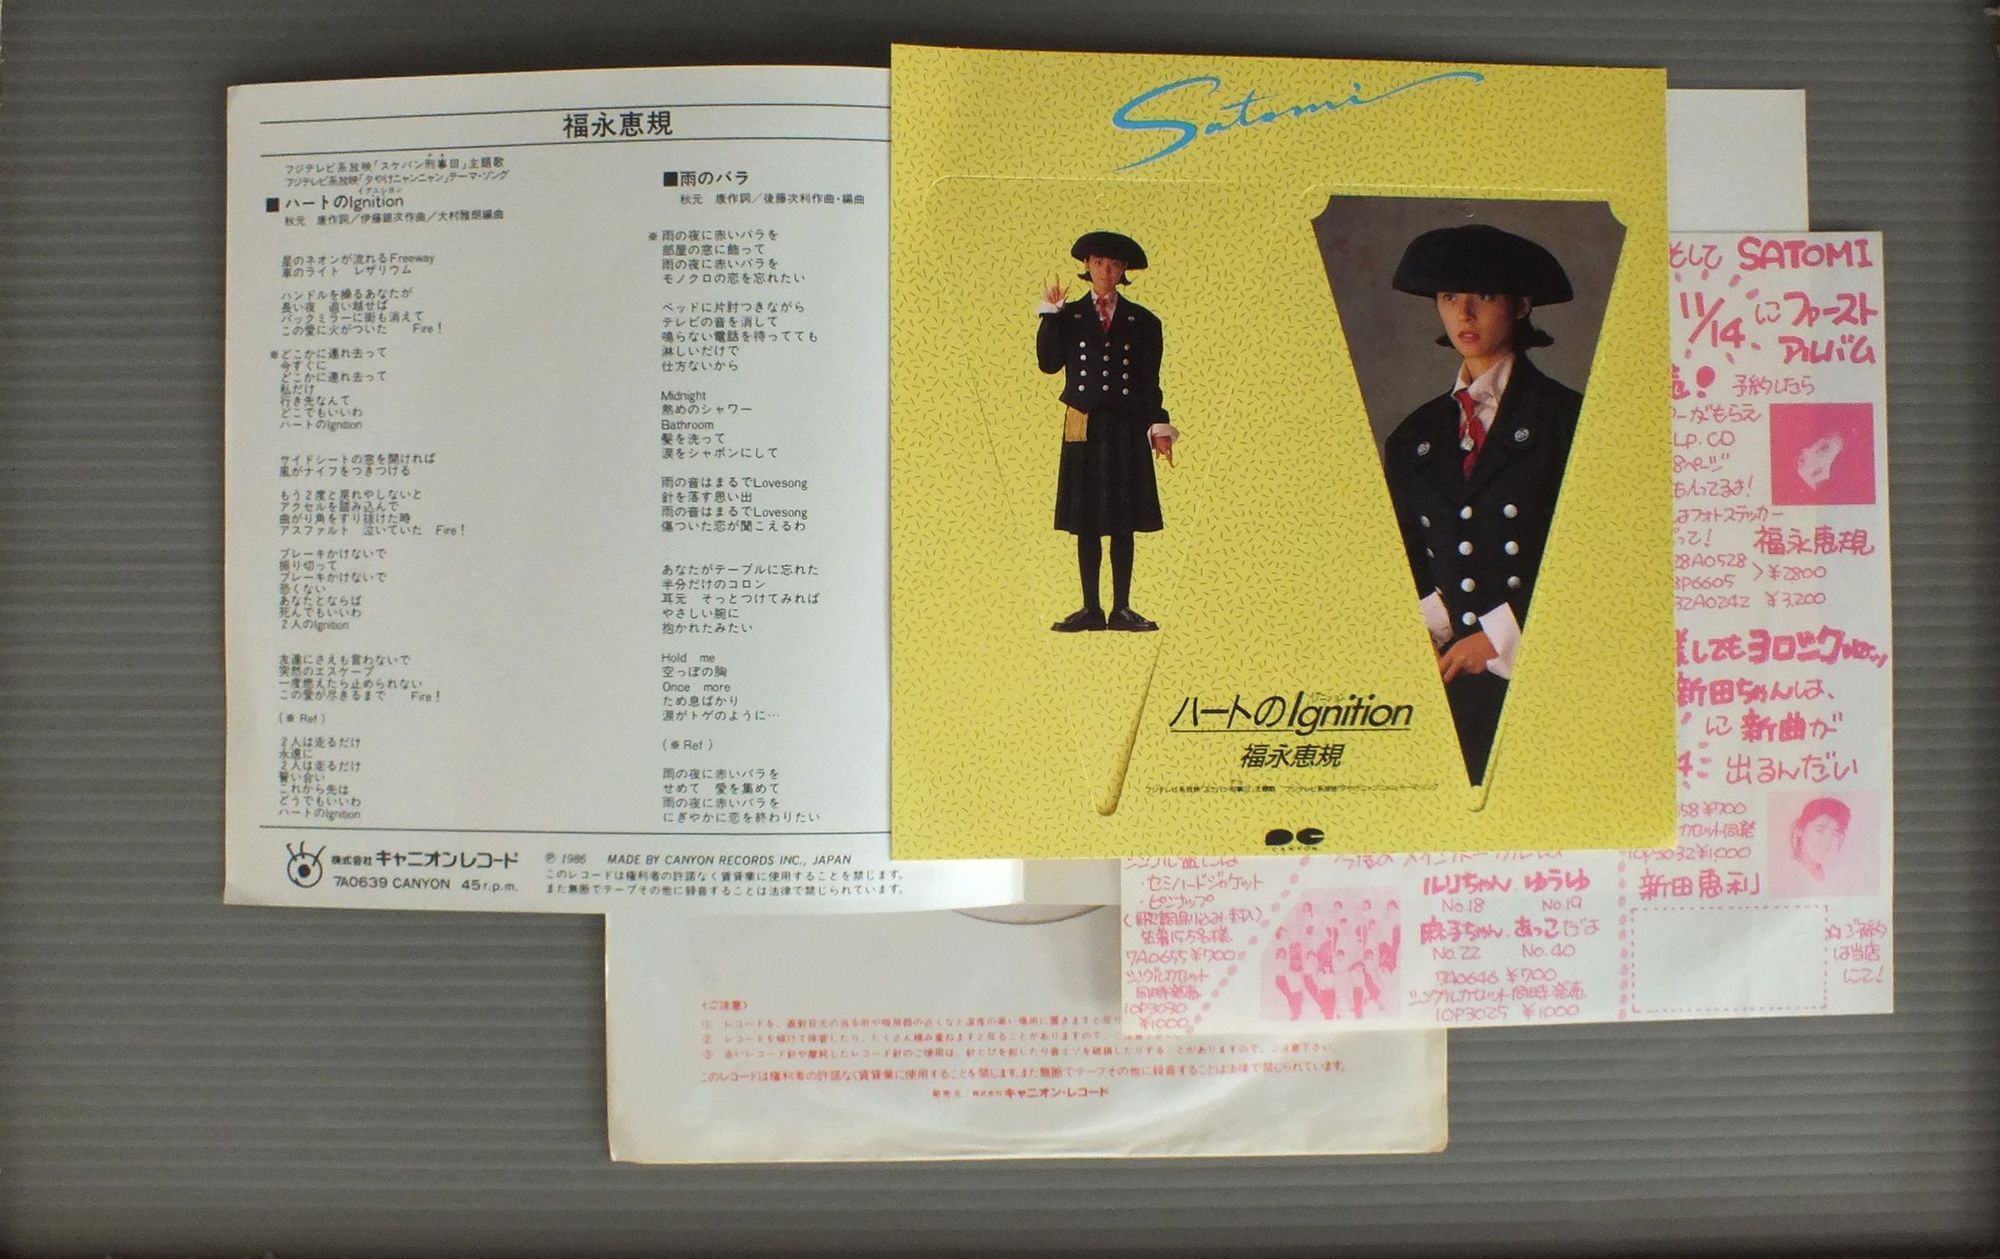 福永恵規
フジテレビ系放映「スケバン刑事III」主題歌
フジテレビ系放映「夕やけニャンニャン」テーマ・ソング
イグニション
■ハートのIgnition
秋元 康作詞／伊藤銀次作曲／大村雅朗編曲
星のネオンが流れるFreeway
車のライト レザリウム
ハンドルを操るあなたが
長い夜 追い越せば
バックミラーに街も消えて
この愛に火がついた Fire！
※どこかに連れ去って
今すぐに
どこかに連れ去って
私だけ
行き先なんて
どこでもいいわ
ハートのIgnition
サイドシートの窓を開ければ
風がナイフをつきつける
もう2度と戻れやしないと
アクセルを踏み込んで
曲がり角をすり抜けた時
アスファルト 泣いていた Fire！
ブレーキかけないで
振り切って
ブレーキかけないで
恐くない
あなたとならば
死んでもいいわ
2人のIgnition
友達にさえも言わないで
突然のエスケープ
一度燃えたら止められない
この愛が尽きるまで Fire！
(※Ref)
2人は走るだけ
永遠に
2人は走るだけ
誓い合い
これから先は
どうでもいいわ
ハートのIgnition
■雨のバラ
秋元 康作詞／後藤次利作曲・編曲
※雨の夜に赤いバラを
部屋の窓に飾って
雨の夜に赤いバラを
モノクロの恋を忘れたい
ベッドに片肘つきながら
テレビの音を消して
鳴らない電話を待ってても
淋しいだけで
仕方ないから
Midnight
熱めのシャワー
Bathroom
髪を洗って
涙をシャボンにして
雨の音はまるでLovesong
針を落す思い出
雨の音はまるでLovesong
傷ついた恋が聞こえるわ
あなたがテーブルに忘れた
半分だけのコロン
耳元 そっとつけてみれば
やさしい腕に
抱かれたみたい
Hold me
空っぽの胸
Once more
ため息ばかり
涙がトゲのように…
(※Ref)
雨の夜に赤いバラを
せめて 愛を集めて
雨の夜に赤いバラを
にぎやかに恋を終わりたい
株式会社キャニオンレコード
7A0639 CANYON 45r.p.m.
Ⓟ 1986 MADE BY CANYON RECORDS INC., JAPAN
このレコードは権利者の許諾なく賃貸業に使用することを禁じます。
また無断でテープその他に録音することは法律で禁じられています。
Satomi
イグニション
ハートのIgnition
福永恵規
フジテレビ系放映「スケバン刑事III」主題歌 フジテレビ系放映「夕やけニャンニャン」テーマ・ソング
CANYON
そして SATOMI
11/14にファースト
アルバム
予約したら
ーがもらえ
LP.CD
8ページ
もハってるよ!
はフォトステッカー
って!
福永恵規
28A0528
3P6605 >¥2800
32A0242 ¥3,200
しでもヨロシク
新田ちゃんは、
に新曲が
4. 出るんだい
58 ¥700
カセット同発
10P3032 ¥1000
新田恵利
☆ご予約
は当店
にて!
シングル盤には
・セミハードジャケット
・ピンナップ
7A0655 ¥700
シングルカセット
同時発売
10P3030
¥1000
今度のメインボーカルは
ルリちゃん、ゆうゆ
No.18 No.19
麻子ちゃん、あっこだよ
No.22 No.40
7A0646 ¥700
シングルカセット同時発売
10P3025 ¥1000
〈ご注意〉
① レコードを、直射日光の当る所や暖房器の近くなど温度の高い場所に置きますと反り
② レコードを傾けて保管したり、たくさん積み重ねますと反ることがありますので、
③ 古いレコード針や摩耗したレコード針のご使用は、針とびを起したり音ミゾを破損したりすることがありますので、ご注意下さい。
このレコードは権利者の許諾なく賃貸業に使用することを禁じます。また無断でテープその他に録音することは法律で禁じられています。
発売元 株式会社キャニオン・レコード